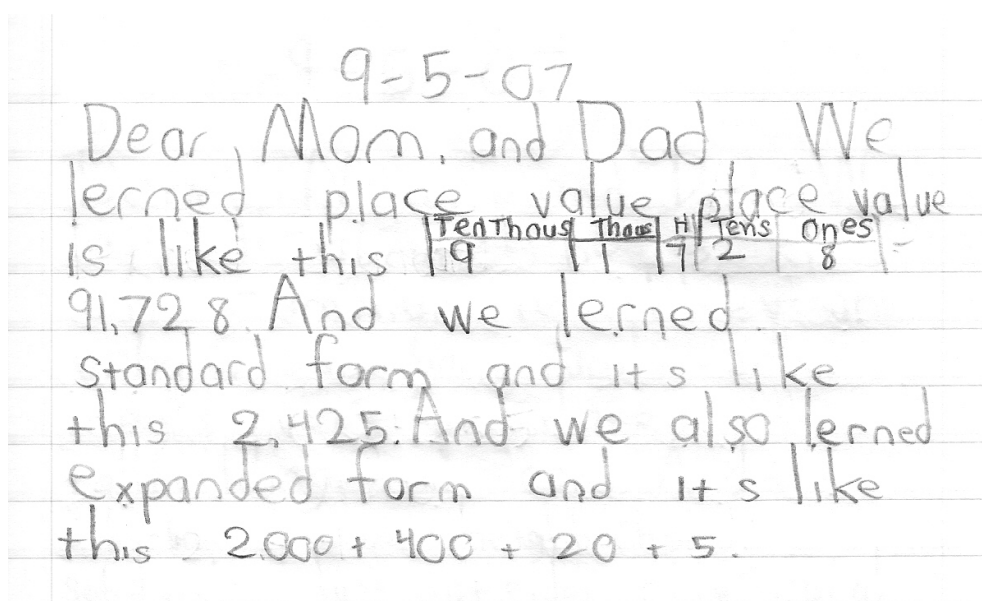 9-5-07
Dear, Mom, and Dad We
lerned place value place value
Ten Thous Thous H Tens Ones
is like this 9 1 7 2 8 =
91,728. And we lerned
standard form and it s like
this 2,425. And we also lerned
expanded form and it s like
this 2,000 + 400 + 20 + 5.